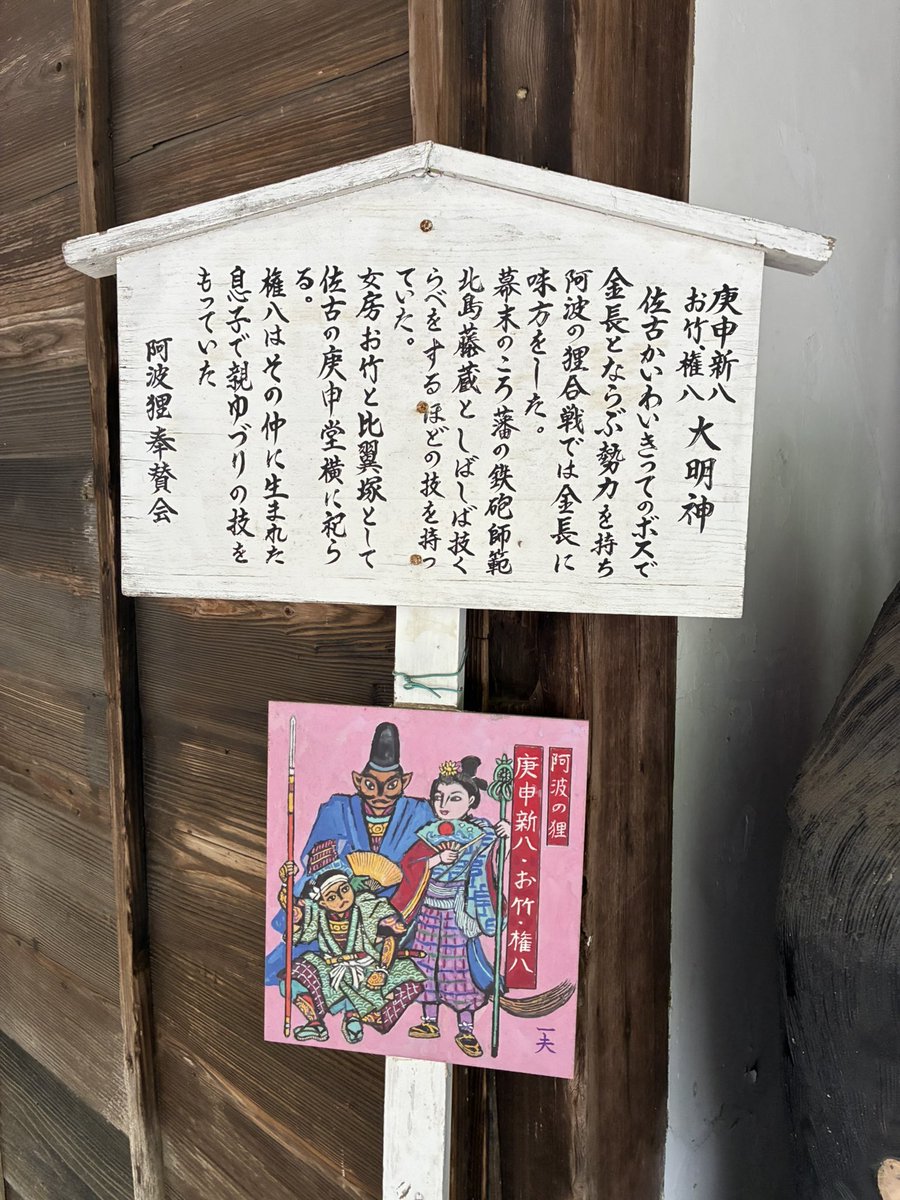 庚申新八
お竹・権八 大明神
佐古かいわいきってのボスで
金長とならぶ勢力を持ち
阿波の狸合戦では金長に
味方をした。
幕末のころ藩の鉄砲師範
北島藤蔵としばしば技く
らべをするほどの技を持っ
ていた。
女房お竹と比翼塚として
佐古の庚申堂横に祀ら
る。
権八はその仲に生まれた
息子で親ゆづりの技を
もっていた
阿波狸奉賛会
阿波の狸
庚申新八・お竹・権八
一夫